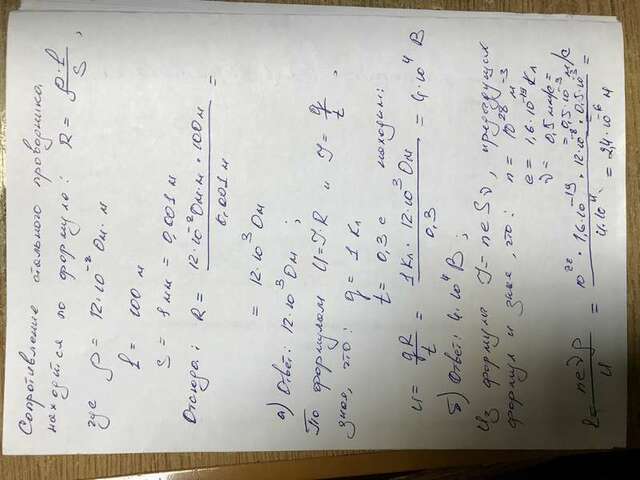 Сопротивление стального проводника
находится по формуле: R = ρ·l/S,
где ρ = 12·10⁻⁸ Ом·м
l = 100 м
S = 1 мм = 0,001 м
Отсюда: R = 12·10⁻² Ом·м · 100 м / 0,001 м =
= 12·10³ Ом
а) Ответ: 12·10³ Ом ;
По формулам U=I·R и I = q/t,
зная, что: q = 1 Кл
t = 0,3 с находим:
U = qR/t = 1 Кл · 12·10³ Ом / 0,3 = 4·10⁴ В
б) Ответ: 4·10⁴ В ;
Из формулы I = neSυ, предыдущих
формул и зная, что: n = 10²⁸ м⁻³
e = 1,6·10⁻¹⁹ Кл
υ = 0,5 мм/с =
= 0,5·10⁻³ м/с
l = neυρ/U = 10²⁸ · 1,6·10⁻¹⁹ · 12·10⁻⁸ · 0,5·10⁻³ / 4·10⁴ =
= 2,4·10⁻⁶ м